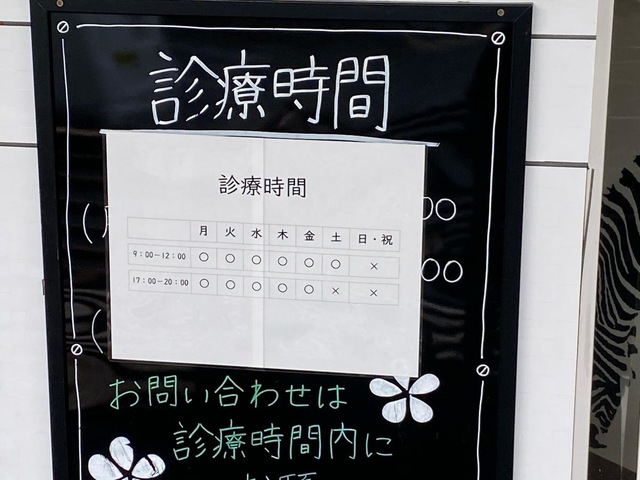 診療時間
診療時間
月 火 水 木 金 土 日・祝
9:00-12:00 ○ ○ ○ ○ ○ ○ ×
17:00-20:00 ○ ○ ○ ○ ○ × ×
お問い合わせは
診療時間内に